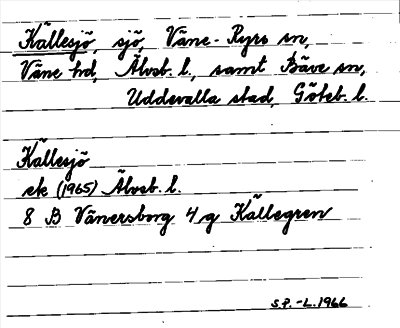 Källesjö, sjö, Väne-Ryrs sn,
Väne hd, Älvsb. l., samt Bäve sn,
Uddevalla stad, Göteb. l.
Källesjö
ek (1965) Älvsb. l.
8 B Vänersborg 4 g Källegren
S.P. -L. 1966